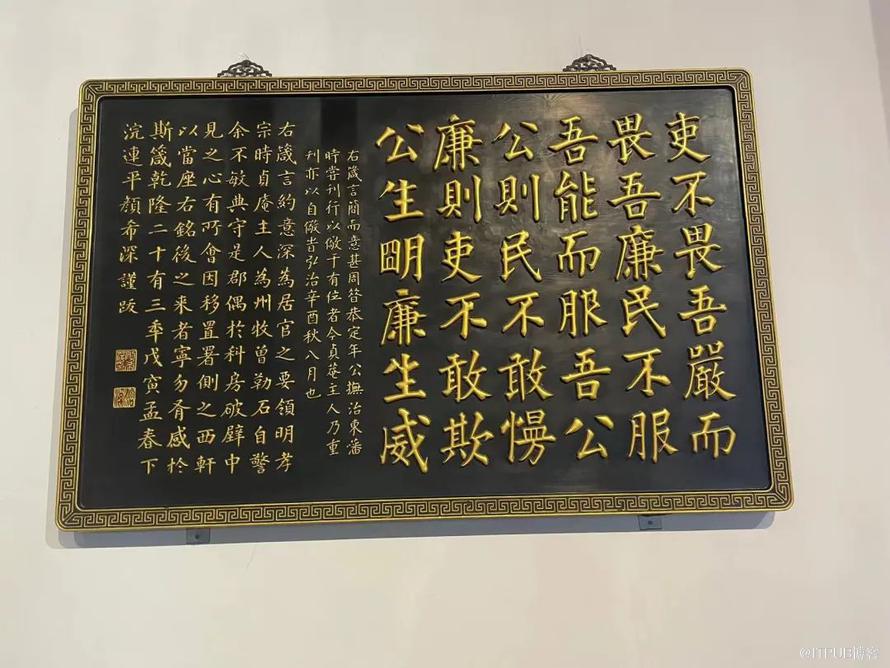 吏不畏吾嚴而
畏吾廉民不服
吾能而服吾公
公則民不敢慢
廉則吏不敢欺
公生明廉生威
右箴言簡而意甚周昝恭定年公撫治東藩
時甞刊行以儆于有位者今貞菴主人乃重
刊亦以自儆旹弘治辛酉秋八月也
右箴言約意深為居官之要領明孝
宗時貞庵主人為州牧曾勒石自警
余不敏典守是郡偶於科房破壁中
見之心有所會因移置署側之西軒
以當座右銘後之来者寧勿胥感於
斯箴乾隆二十有三年戊寅孟春下
浣連平顏希深謹跋
@ITPUB博客